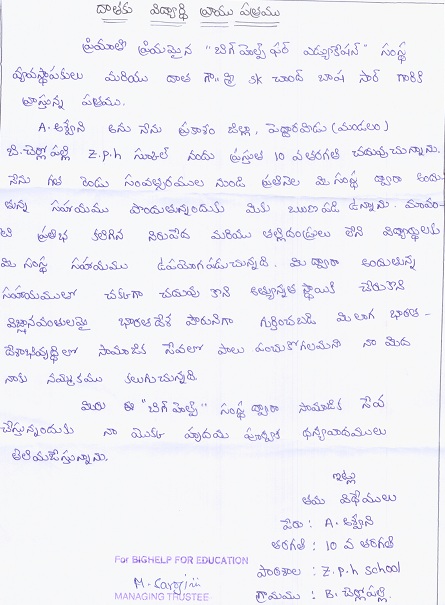 దాతకు విద్యార్థి వ్రాయు పత్రము
ప్రియాతి ప్రియమైన "బిగ్ హెల్ప్ ఫర్ ఎడ్యుకేషన్" సంస్థ
వ్యవస్థాపకులు మరియు దాత గౌ॥ శ్రీ sk చాంద్ బాష సార్ గారికి
వ్రాస్తున్న పత్రము.
A. అశ్వేని అను నేను ప్రకాశం జిల్లా, పెద్దారవీడు (మండలం)
బి.చెర్లోపల్లి Z.p.h స్కూల్ నందు ప్రస్తుత 10 వ తరగతి చదువుచున్నాను.
నేను గత రెండు సంవత్సరముల నుండి ప్రతినెల మీ సంస్థ ద్వారా అందు
తున్న సహాయము పొందుతున్నందుకు మీకు ఋణపడి ఉన్నాను. మావం-
టి ప్రతిభ కలిగిన నిరుపేద మరియు తల్లిదండ్రులు లేని విద్యార్థులకు
మీ సంస్థ సహాయము ఉపయోగపడుచున్నది. మీ ద్వారా అందుతున్న
సహాయములో చక్కగా చదువు కొని అత్యున్నత స్థాయికి చేరుకొని
విజ్ఞానవంతులమై భారతదేశ పౌరునిగా గుర్తించబడి మీలాగ భారత-
దేశాభివృద్ధిలో సామాజిక సేవలో పాలు పంచుకోగలమని నా మీద
నాకు నమ్మకము కలుగుచున్నది.
మీరు ఈ "బిగ్ హెల్ప్" సంస్థ ద్వారా సామాజిక సేవ
చేస్తున్నందుకు నా యొక్క హృదయ పూర్వక ధన్యవాదములు
తెలియజేస్తున్నాను.
ఇట్లు
తమ విధేయులు
పేరు : A. అశ్వేని
తరగతి : 10 వ తరగతి
పాఠశాల : Z.p.h school
గ్రామము : B. చెర్లోపల్లి.
For BIGHELP FOR EDUCATION
MANAGING TRUSTEE